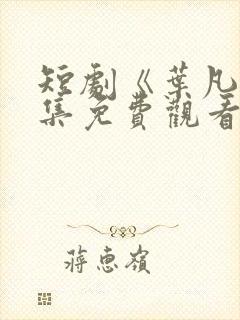 短劇《葉凡
集免費觀看
蔣惠嶺